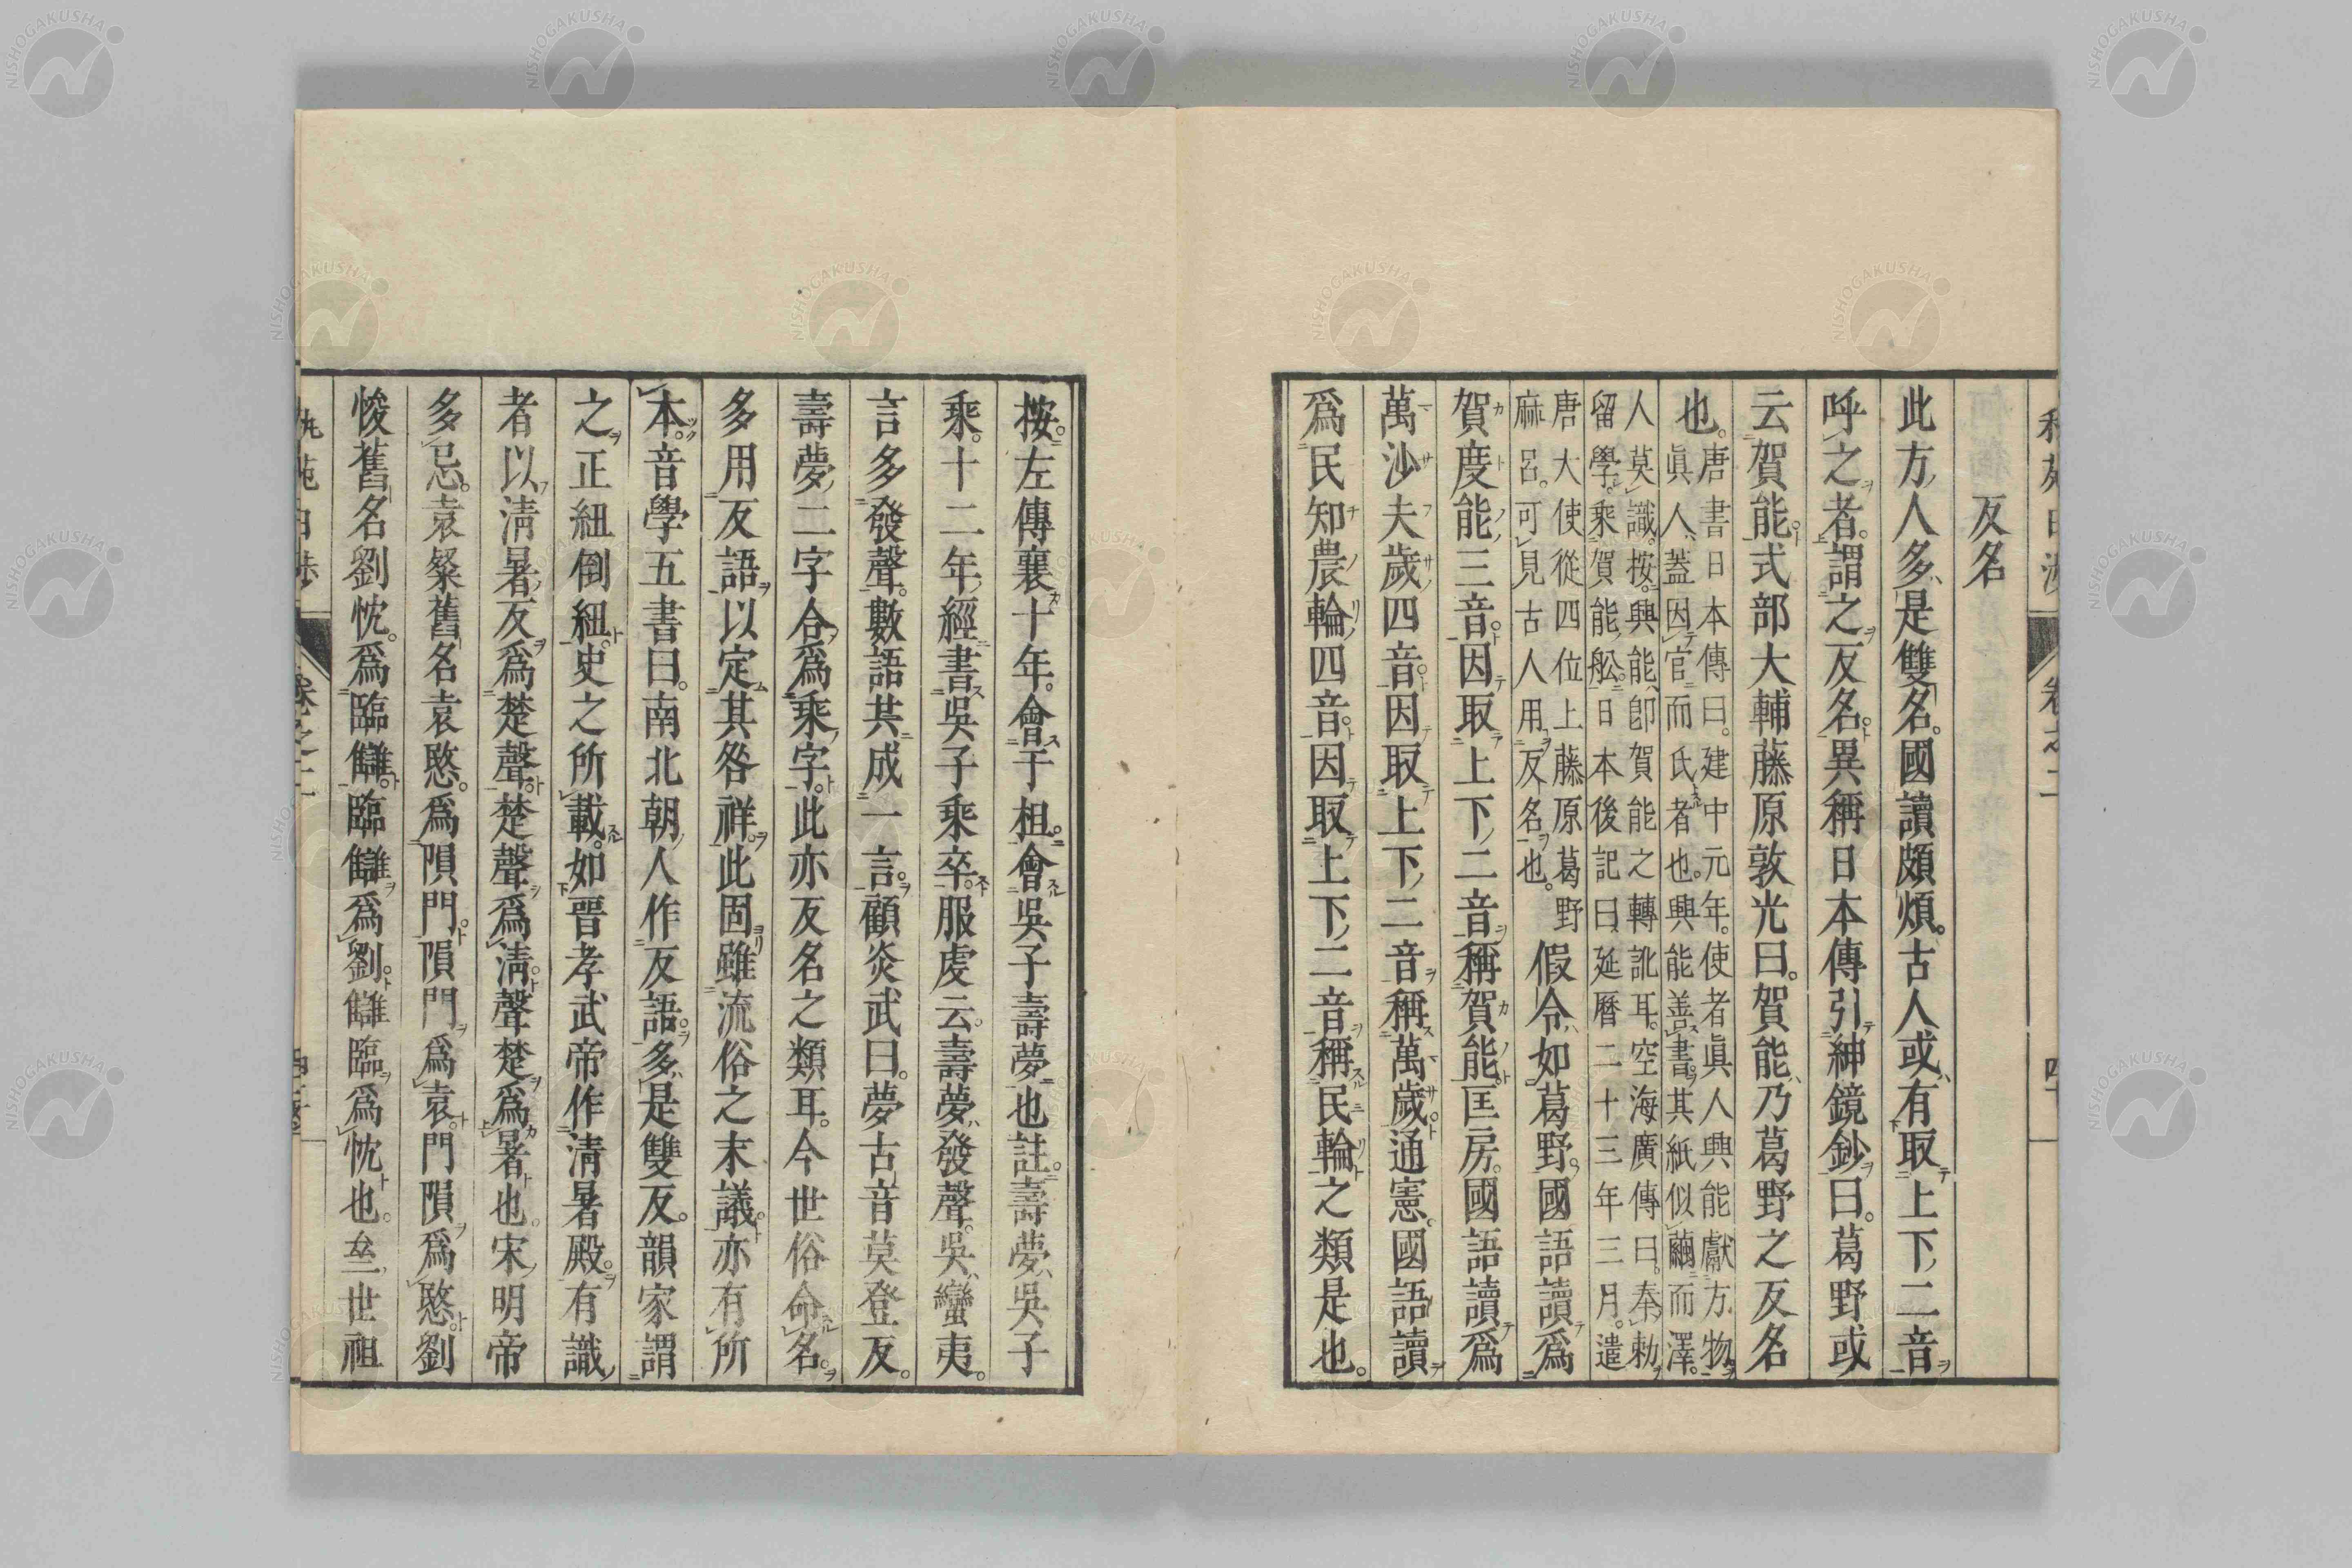 反名
此方人多是雙名。國讀頗煩。古人或有取上下二音
呼之者。謂之反名。異稱日本傳引紳鏡鈔曰。葛野或
云賀能。式部大輔藤原敦光曰。賀能乃葛野之反名
也。
唐書日本傳曰。建中元年。使者眞人興能獻方物。
眞人蓋因官而氏者也。興能善書。其紙似繭而澤。
人莫識。按。興能卽賀能之轉訛耳。空海廣傳曰。奉勅
留學。乘賀能舩。日本後記曰。延曆二十三年三月。遣
唐大使從四位上藤原葛野
麻呂。可見古人用反名也。
假令如葛野。國語讀爲
賀度能三音。因取上下二音。稱賀能。匡房。國語讀爲
萬沙夫歲四音。因取上下二音稱萬歲。通憲。國語讀
爲民知農輪四音。因取上下二音稱民輪之類是也。
按。左傳襄十年。會于柤。會吳子壽夢也註。壽夢吳子
乘。十二年經書吳子乘卒。服虔云。壽夢發聲。吳蠻夷。
言多發聲。數語共成一言。顧炎武曰。夢古音莫登反。
壽夢二字合爲乘字。此亦反名之類耳。今世俗命名。
多用反語。以定其咎祥。此固雖流俗之末議。亦有所
本。音學五書曰。南北朝人作反語。多是雙反。韻家謂
之正紐倒紐。史之所載。如晉孝武帝作淸暑殿。有識
者以淸暑反爲楚聲。楚聲爲淸。聲楚爲暑也。宋明帝
多忌。袁粲舊名袁愍。爲隕門。隕門爲袁。門隕爲愍。劉
悛舊名劉忱。爲臨讎。臨讎爲劉。讎臨爲忱也。叅世祖
卷之二
四